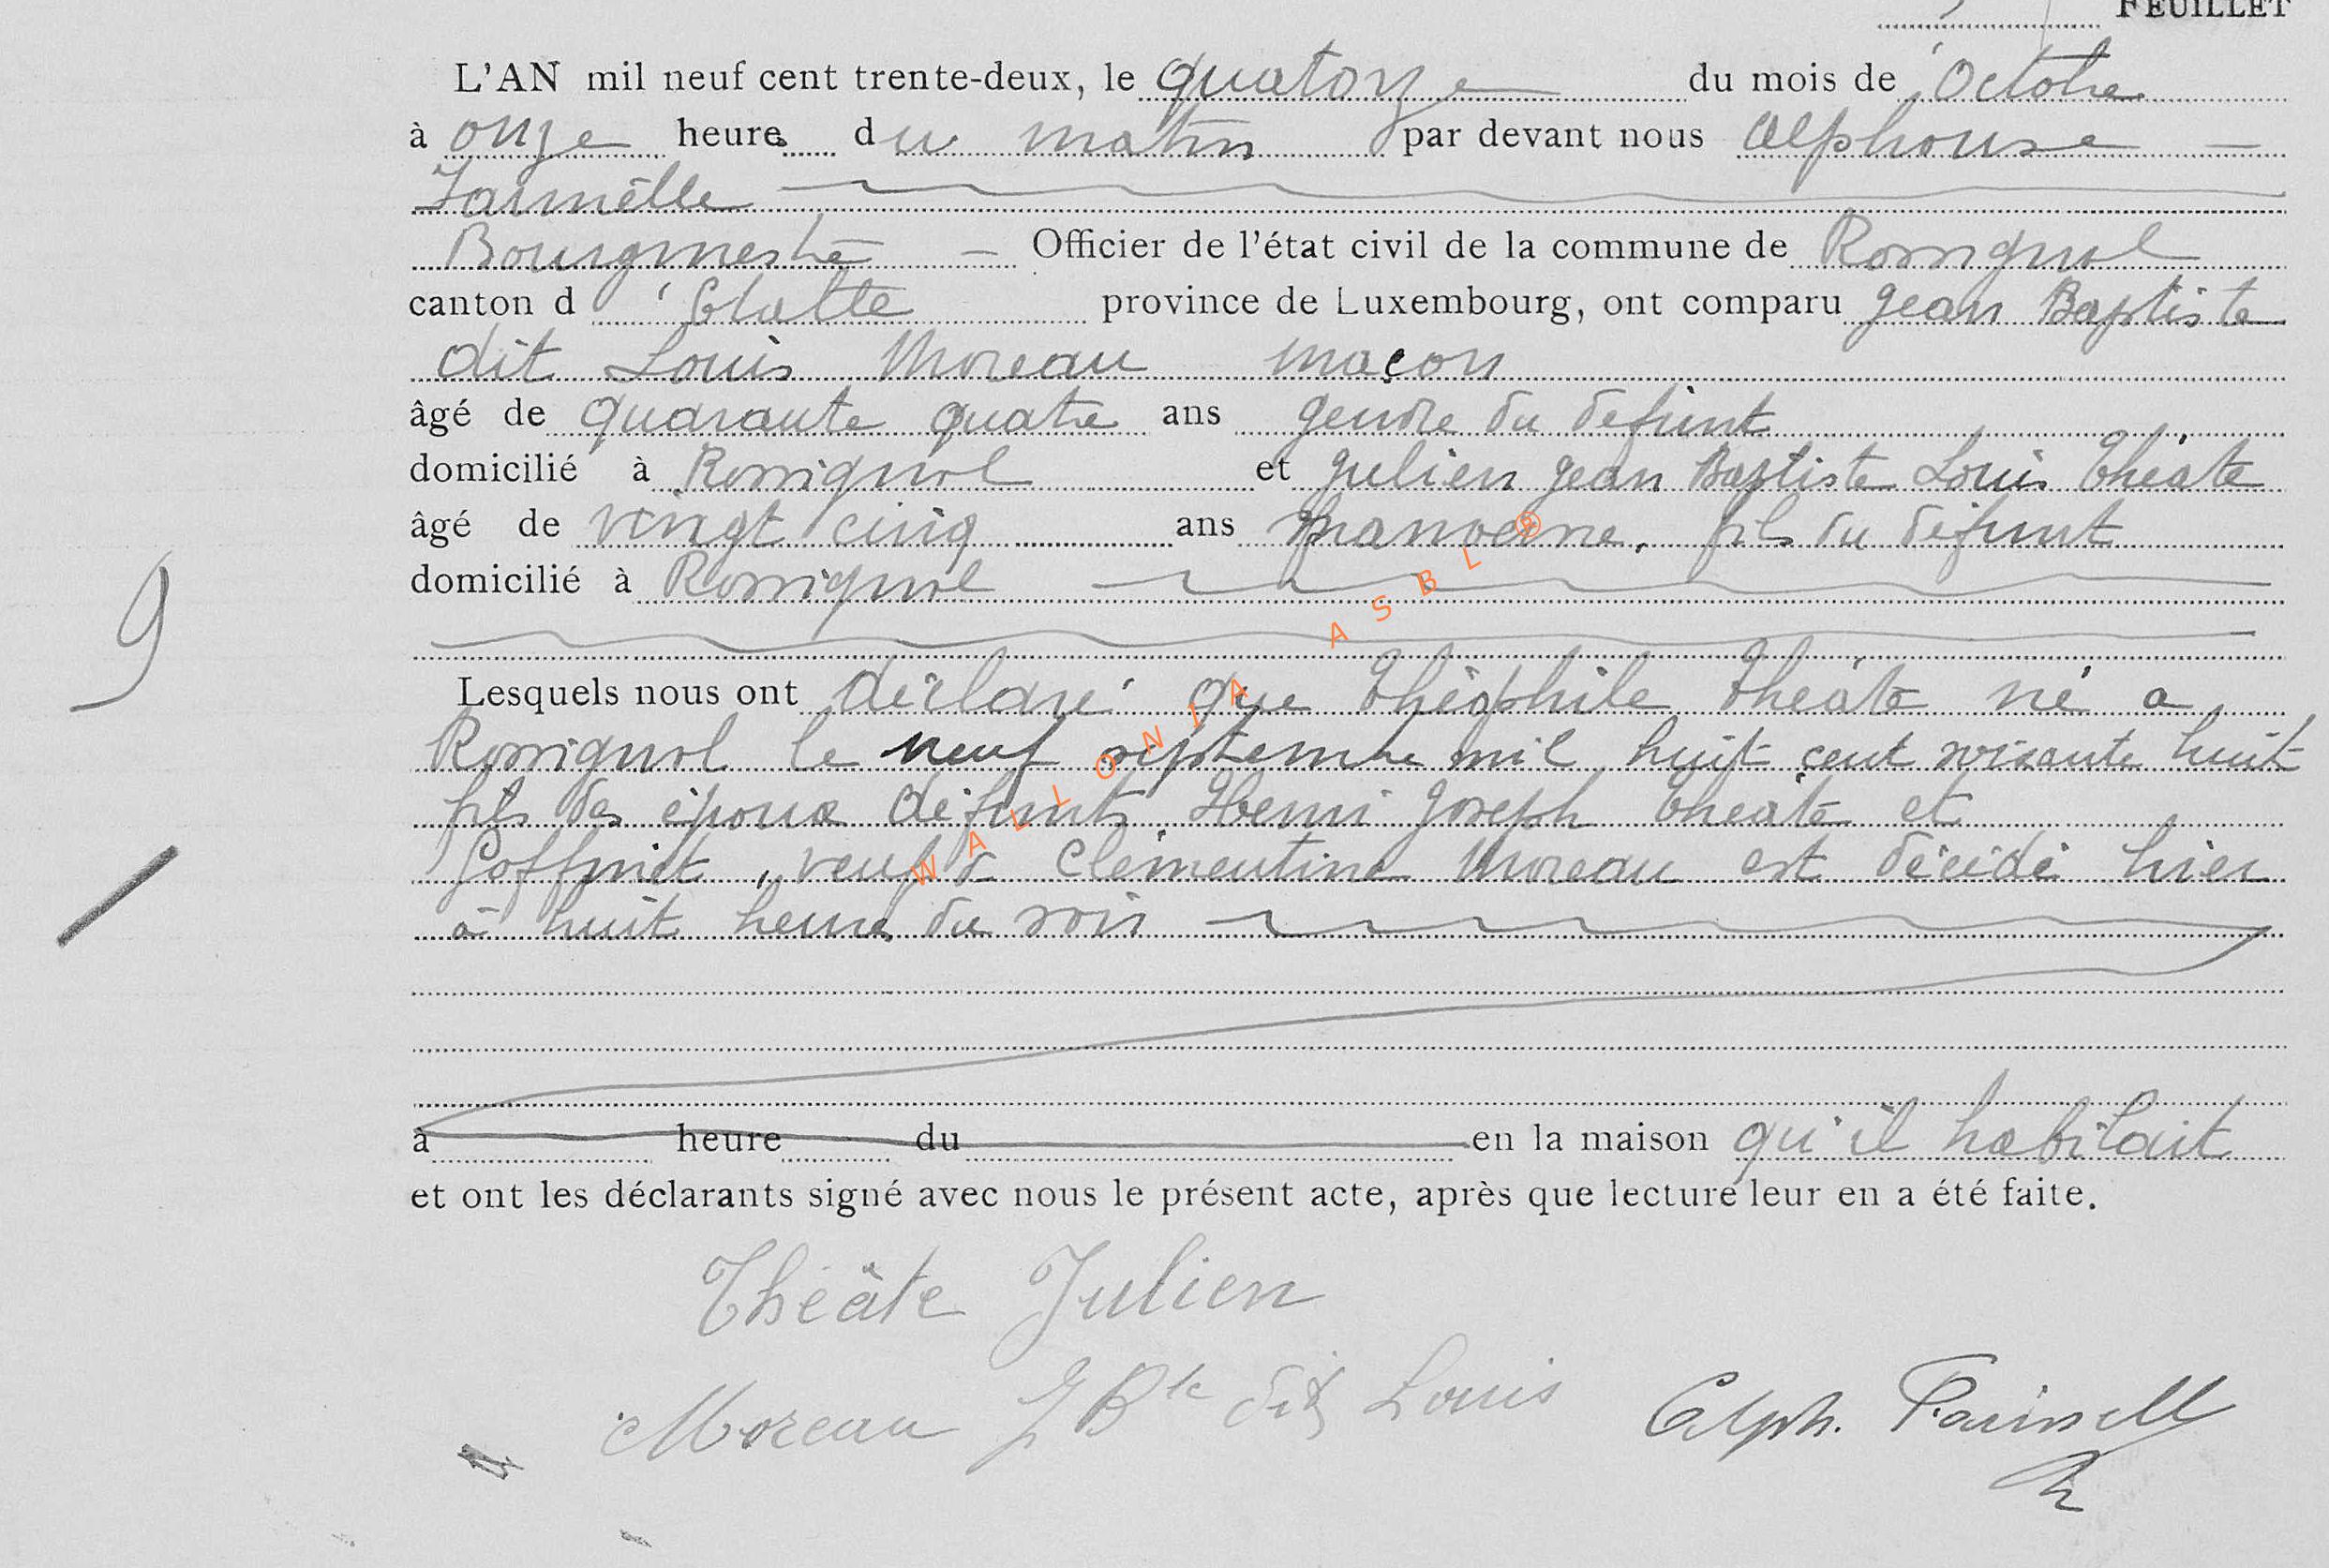 FEUILLET
L'AN mil neuf cent trente-deux, le quatorze du mois de Octobre
à onze heures du matin par devant nous Alphonse
Bourgmestre Officier de l'état civil de la commune de Rossignol
canton d'Etalle province de Luxembourg, ont comparu Jean Baptiste
dit Louis Moreau maçon
âgé de quarante quatre ans gendre du defunt
domicilié à Rossignol et Julien Jean Baptiste Louis Théate
âgé de vingt cinq ans manoeuvre, fils du défunt
domicilié à Rossignol
9
Lesquels nous ont déclaré que Théophile Théate né a
Rossignol le neuf septembre mil huit cent soixante huit
fils des époux défunts Henri Joseph Théate et
Goffinet, veuf de Clémentine Moreau est décédé hier
à huit heures du soir
à heure du en la maison qu'il habitait
et ont les déclarants signé avec nous le présent acte, après que lecture leur en a été faite.
Théâte Julien
Moreau J Bte dit Louis
Alph.
WALLONIA ASBL ®